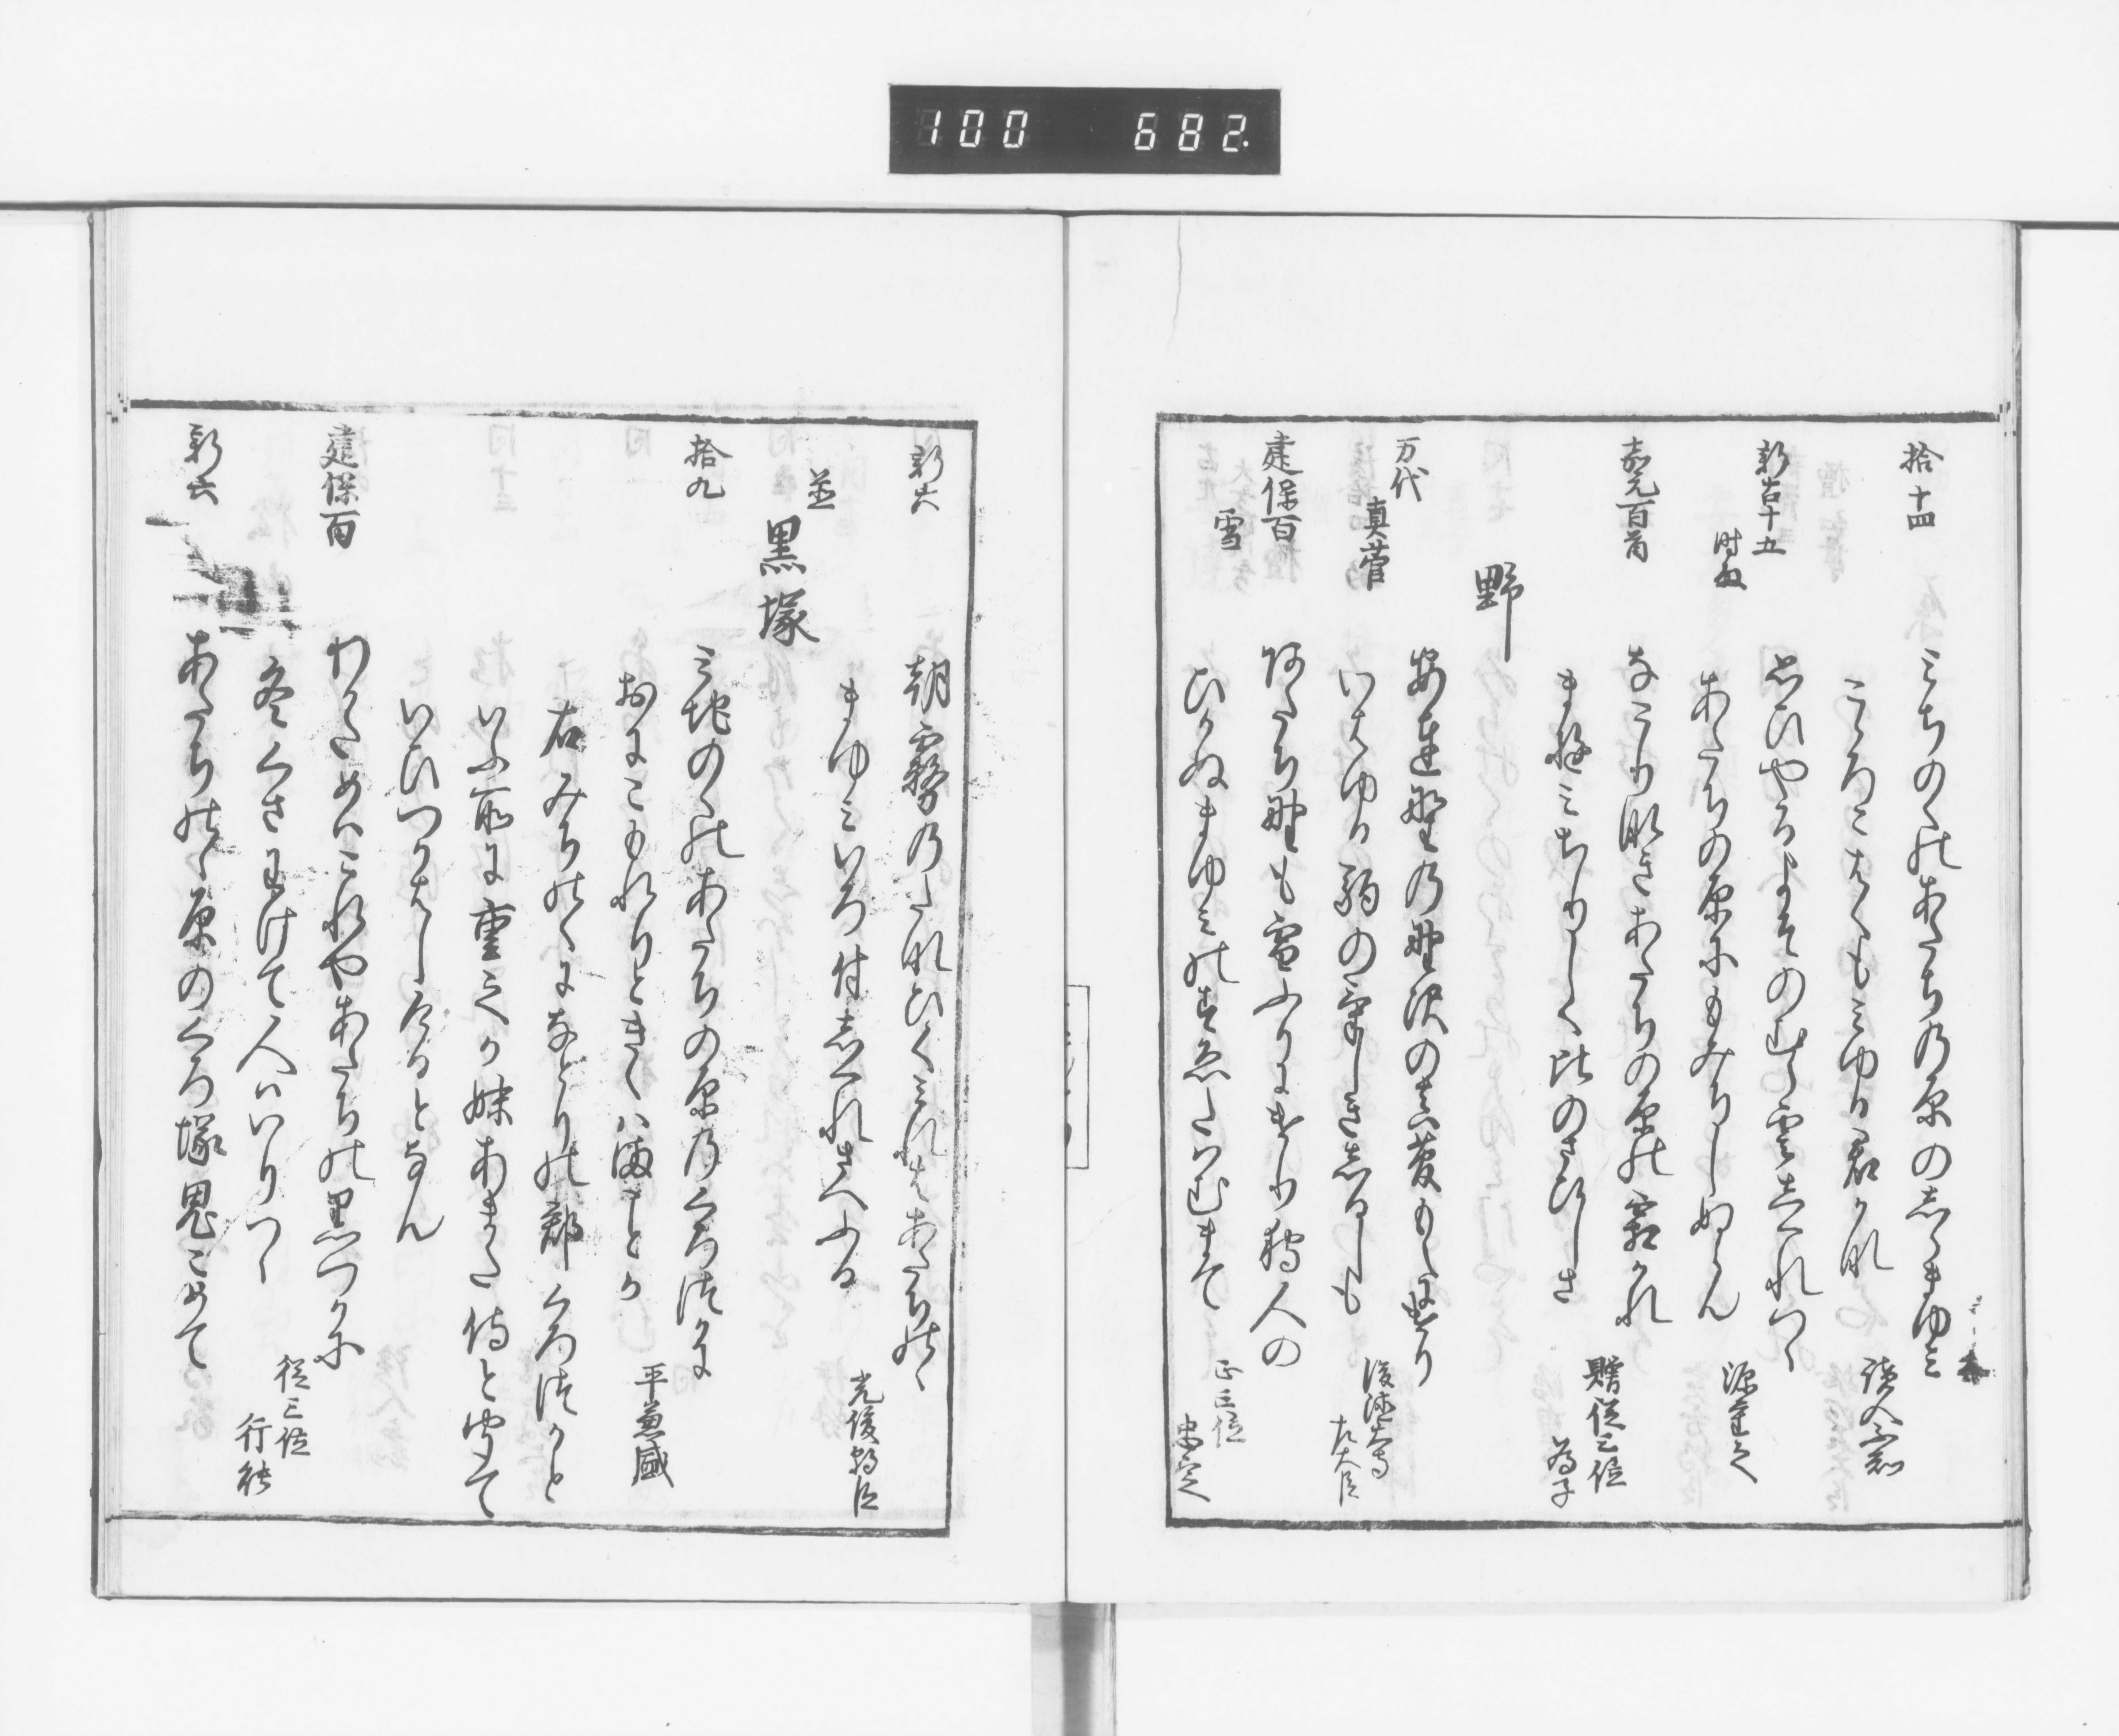 100 682.
拾十四
みちのくのあたちの原のしらまゆみ
こゝろこはくもみゆる君かな
読人不知
新古十五
思ひやるよそのむら雲しくれつゝ
時雨
あたちの原にもみちしぬらん
源重之
嘉元百首
なこり なきあたちの原の霜かれ
ま弓ちりしく比のさひしさ
贈従三位
為子
野
万代
安達野の野沢の真菅もえにけり
真菅
いはゆる駒のけしきしるしも
後法性寺
左大臣
建保百
あたち野も雪ふりにけり狩人の
雪
ひかぬまゆみのすゑたはむまて
正三位
忠定
新六
朝霧のたなひくみれはあたちのゝ
並
まゆみいろ付しくれさへふる
光俊朝臣
黒塚
拾九
みちのくのあたちの原のくろつかに
おにこもれりときくはまことか
平兼盛
右みちのくになとりの郡くろつかと
いふ所に重之か妹あまた侍とききて
いひつかはしけるとなん
建保百
わかためはこれやあたちの黒つかに
冬くさわけて人はいりつゝ
従三位
行能
新六
あたちのゝ原のくろ塚鬼こめて